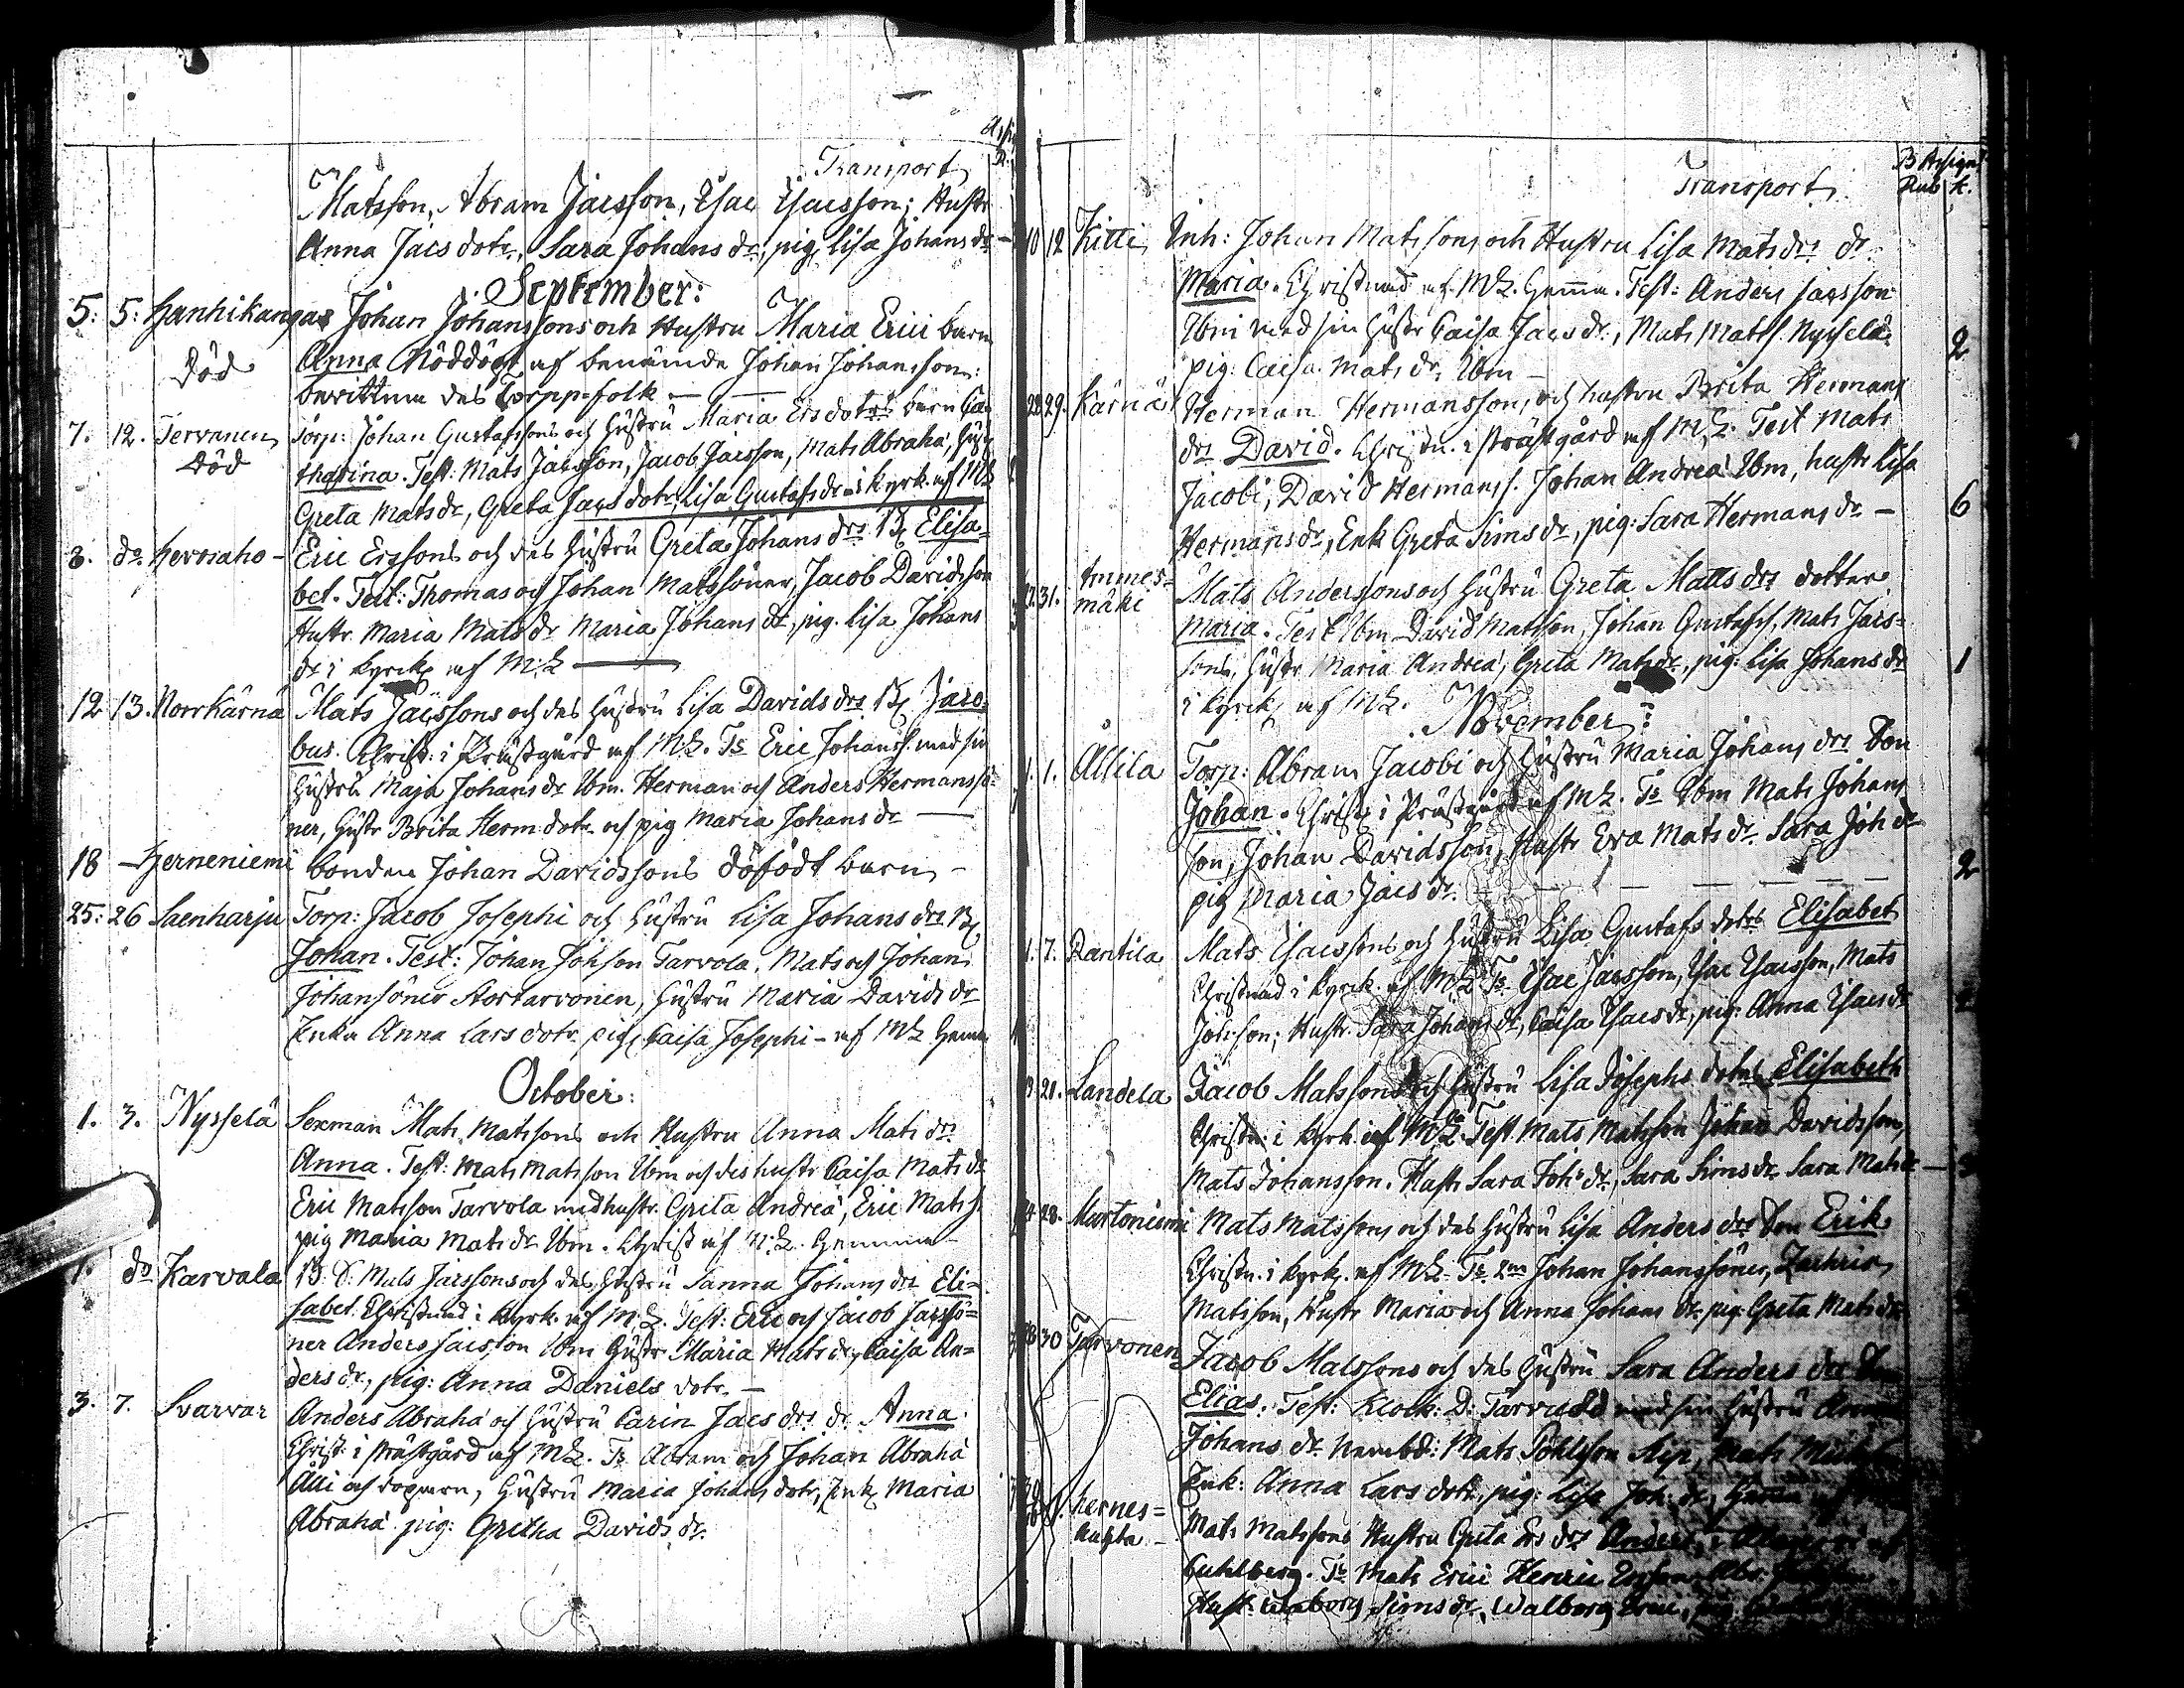 Transport
Matsson, Abram Jacsson, Isac Isacsson; Hustr
Anna Jacsdotr, Sara Johans dr, pig, Lisa Johans dr
September:
5. 5. Hanhikangas Johan Johanssons och Hustru Maria Erici barn
Död Anna Nöddöpt af benämnde Johan Johansson:
bevittnm des Torpp-folk
7. 12. Tervonen Torp: Johan Gustafssons och Hustru Maria Ersdotrs barn Ca-
Död tharina. Test: Mats Jacsson, Jacob Jacsson, Mats Abraha, Hust
Greta Matsdr, Greta Jacsdotr, Lisa Gustafsdr i Kyrk. af MZ
8. do Hervsaho Eric Erssons och des Hustru Greta Johans drs B Elisa-
bet. Test: Thomas och Johan Matssöner, Jacob Davidsson
Hustr. Maria Mats dr Maria Johans dr, pig. Lisa Johans
dr i Kyrck af MZ
12 13. Norrkärnä Mats Jacssons och des Hustru Lisa Davids drs B Jaco-
bus. Christ: i Prästgård af MZ. Ts Eric Johanss. med sin
Hustru Maja Johans dr Ibm. Herman och Anders Hermanssö-
ner, Hustr Brita Herm:dotr och pig Maria Johans dr
18 Herneniemi bonden Johan Davidssons döfödt barn
25. 26 Saenharju Torp: Jacob Josephi och Hustru Lisa Johans drs B
Johan. Test: Johan Johsson Tarvola, Mats och Johan
Johanssöner Stortarvonen, Hustru Maria Davids dr
Enka Anna Lars dotr pig Caisa Josephi - af MZ Hemma
October:
1. 3. Nysselä Sexman Mats Matssons och Hustru Anna Mats drs
Anna. Test: Mats Matsson Ibm och des hustr Caisa Mats dr
Eric Matsson Tarvola med hustr. Greta Andreä, Eric Mats s.
pig Maria Mats dr Ibm. Christ af MZ. Hemma
1. do Karvala B. S: Mats Jacssons och des Hustru Sanna Johans drs Eli-
sabet. Christnad i Kyrk. af M.Z. Test: Eric och Jacob Jacssö-
ner Anders Jacsson Ibm Hustr. Maria Mats dr, Caisa An-
ders dr, pig: Anna Daniels dotr.
3. 7. Svarvar Anders Abraha och Hustru Carin Jacs drs dr. Anna
Christ: i Prästgård af MZ. Ts Abram och Johan Abraha
Alli och Hustru Maria Johans dotr, Enk Maria
Abraha pig: Gretha Davids dr.
Transport
B Assign
Rub k.
10 12 Kitti Inh: Johan Matssons och Hustru Lisa Mats drs dr.
Maria. Christnad af MZ. Hemma. Test: Anders Jacsson
Ibm med sin Hustr Caisa Jacs dr, Mats Matss. Nysselä
pig: Caisa Mats dr, Ibm 2
29. Kärnä Herman Hermanssons och hustru Brita Hermans
drs David. Christn. i Prästgård af MZ. Test Mats
Jacobi, David Hermanss. Johan Andreä Ibm, hustr Lisa
Hermans dr, Enk Greta Sims dr, pig: Sara Hermans dr 6
31. Ammes-
mäki Mats Anderssons och Hustru Greta Matts drs dotter
Maria. Test Ibm David Matsson, Johan Gustafss, Mats Jacs-
sons, Hustr Maria Andreä, Greta Mats dr, pig: Lisa Johans dr 1
i Kyrck af MZ.
November:
1. 1. Allila Torp: Abram Jacobi och Hustru Maria Johans drs Son
Johan. Christ i Prästgård af MZ. Ts Ibm Mats Johans
son, Johan Davidsson, Hustr Eva Mats dr. Sara Joh dr
pig Maria Jacs dr. 2
1. 7. Rantila Mats Isacssons och Hustru Lisa Gustafs dotrs Elisabet
Christnad i Kyrck. af MZ Ts Isac Jacsson, Isac Isacsson, Mats
Joh:son; Hustr. Sara Johans dr, Caisa Isacs dr, pig: Anna Isacs dr
21. Landela Jacob Matssons och Hustru Lisa Josephs dotrs Elisabeth
Christn: i Kyrk af MZ. Test Mats Matsson Johan Davidsson,
Mats Johansson. Hustr Sara Joh:dr, Sara Sims dr Sara Mats dr
28. Murtoniemi Mats Matssons och des Hustru Lisa Anders drs Son Erik
Christn. i Kyrk. af MZ. Ts 2ne Johan Johanssöner, Zachris
Matsson, Hustr Maria och Anna Johans dr. pig: Greta Mats dr
30 Tarvonen Jacob Matssons och des Hustru Sara Anders drs Son
Elias. Test: Klock: D: Tarvudd med sin Hustru Anna
Johans dr. Nambd: Mats
Enk: Anna Lars dotr, pig: Lisa Joh: dr,
Hernes-
Mats Matssons Hustru Greta Ers drs Anders,
Cuhlberg. Ts Mats Erici Henric Ersson,
Hust: Walborg Sims dr, Walborg Erici,